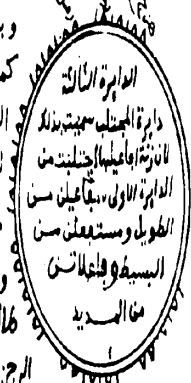 الدايرة الثالثة
دايرة المجتلب سميت بذلك
لان تفاعيلها اجتلبت من
الدايرة الاولى مفاعيلن من
الطويل ومستفعلن من
البسيط وفاعلاتن
من المديد